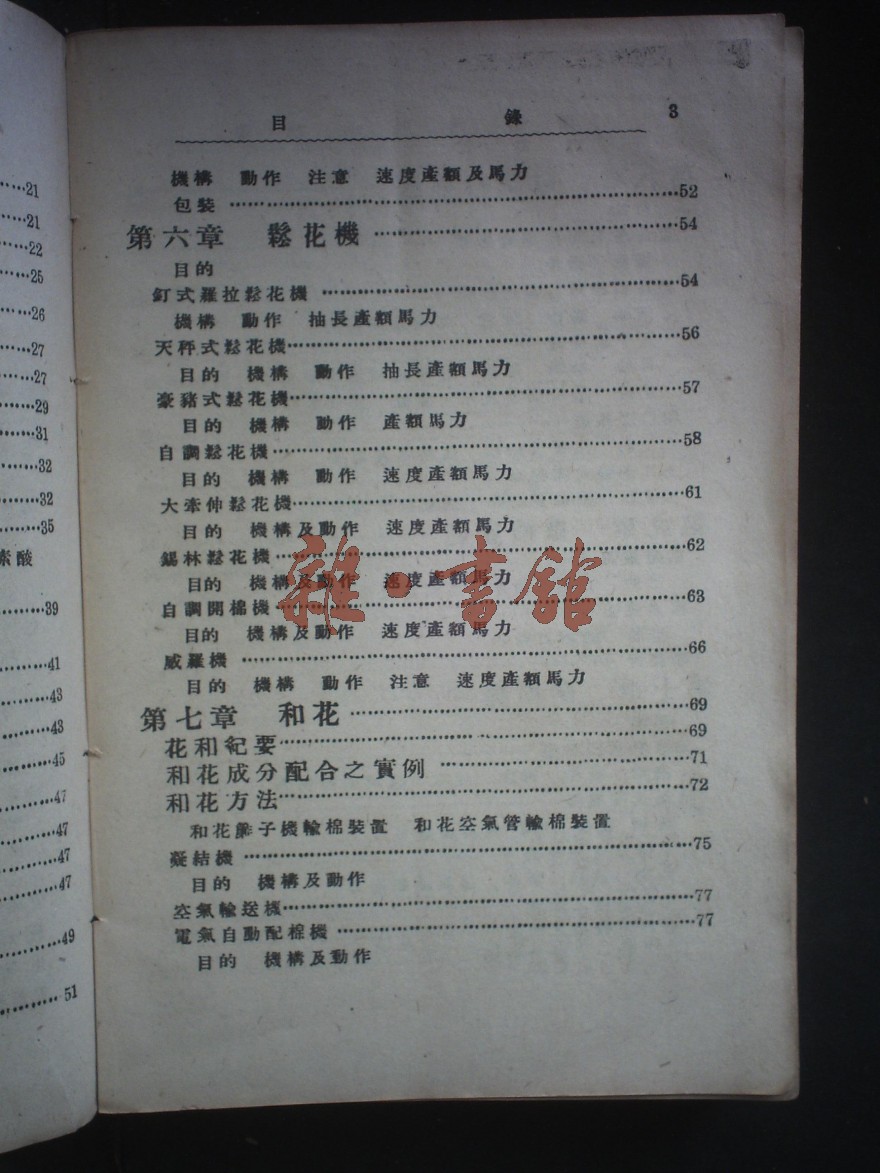 目 錄 3
機構 動作 注意 速度產額及馬力
包裝……52
第六章 鬆花機……54
目的
釘式羅拉鬆花機……54
機構 動作 抽長產額馬力
天秤式鬆花機……56
目的 機構 動作 抽長產額馬力
豪豬式鬆花機……57
目的 機構 動作 產額馬力
自調鬆花機……58
目的 機構 動作 速度產額馬力
大牽伸鬆花機……61
目的 機構及動作 速度產額馬力
錫林鬆花機……62
目的 機構及動作 速度產額馬力
自調開棉機……63
目的 機構及動作 速度產額馬力
威羅機……66
目的 機構 動作 注意 速度產額馬力
第七章 和花……69
花和紀要……69
和花成分配合之實例……71
和花方法……72
和花簾子機輸棉裝置 和花空氣管輸棉裝置
凝結機……75
目的 機構及動作
空氣輸送機……77
電氣自動配棉機……77
目的 機構及動作
雜·書館
……21
……21
……22
……25
……26
……27
……27
……29
……31
……32
……32
……35
素酸
……39
……41
……43
……43
……45
……47
……47
……47
……47
……49
……51